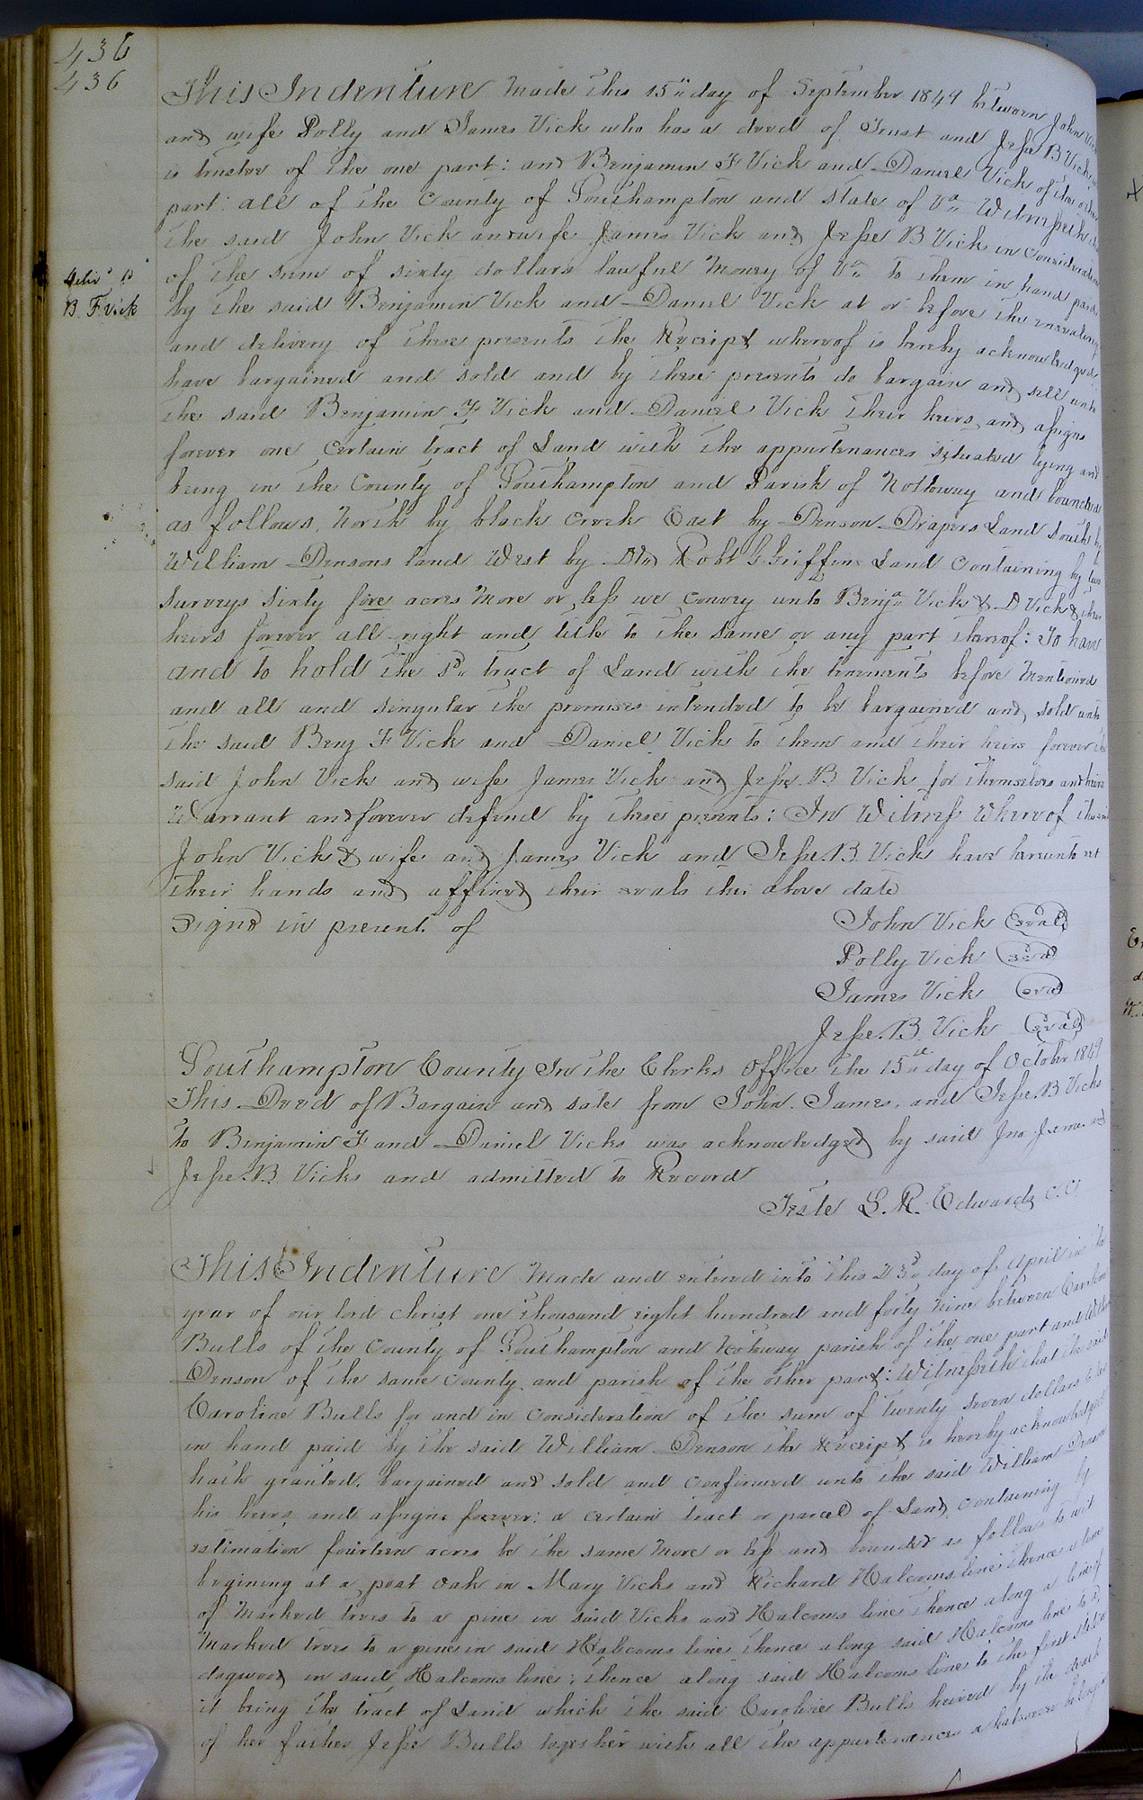 436
436
This Indenture Made this 15" day of September 1849 between John Vick
and wife Polly and James Vick who has a deed of Trust and Jesse B Vick
is trustee of the one part: and Benjamin F Vick and Daniel Vick of the other
part: all of the County of Southampton and State of Va Witnesseth
the said John Vick and wife James Vick and Jesse B Vick in consideration
of the sum of sixty dollars lawful Money of Va to them in hand paid
by the said Benjamin Vick and Daniel Vick at or before the ensealing
and delivery of these presents the Receipt whereof is hereby acknowledged
have bargained and sold and by these presents do bargain and sell unto
the said Benjamin F Vick and Daniel Vick their heirs and assigns
forever one certain tract of Land with the appurtenances situated lying and
being in the County of Southampton and Parish of Nottoway and bounded
as follows, North by black Creek East by Denson Drapers Land South by
William Densons land West by Robt G Griffins Land Containing by two
surveys sixty five acres More or less we convey unto Benja Vick & D Vick & their
heirs forever all right and title to the same or any part thereof: To have
and to hold the sd tract of Land with the tenements before Mentioned
and all and singular the premises intended to be bargained and sold unto
the said Benj F Vick and Daniel Vick to them and their heirs forever the
said John Vick and wife James Vick and Jesse B Vick for themselves and heirs
Warrant and forever defend by these presents: In Witness Whereof the said
John Vick & wife and James Vick and Jesse B Vick have hereunto set
their hands and affixed their seals the above date
Signd in present of
John Vick Seal
Polly Vick Seal
James Vick Seal
Jesse B Vick Seal
Deliv'd to
B. F. Vick
Southampton County In the Clerks Office the 15th day of October 1849
This Deed of Bargain and sale from John, James, and Jesse B Vicks
to Benjamin F and Daniel Vicks was acknowledged by said Jno James and
Jesse B Vicks and admitted to Record
Teste L. R. Edwards C.C.
This Indenture Made and entered into this 23d day of April in the
year of our lord Christ one thousand eight hundred and forty Nine between Caroline
Bulls of the County of Southampton and Notoway parish of the one part and William
Denson of the same County and parish of the other part: Witnesseth that the said
Caroline Bulls for and in consideration of the sum of twenty seven dollars
in hand paid by the said William Denson the Receipt is hereby acknowledged
hath granted, bargained and sold and confirmed unto the said William Denson
his heirs and assigns forever: a certain tract or parcel of Land containing by
estimation fourteen acres be the same More or less and bounded as follows to wit
begining at a post Oak in Mary Vicks and Richard Halcoms line thence a line
of Marked trees to a pine in said Vicks and Halcoms line thence along a line of
Marked trees to a pine in said Halcoms line thence along said Halcoms line to a
dogwood in said Halcoms line; thence along said Halcoms line to the first station
it being the tract of Land which the said Caroline Bulls heired by the death
of her father Jesse Bulls together with all the appurtenances whatsoever belonging